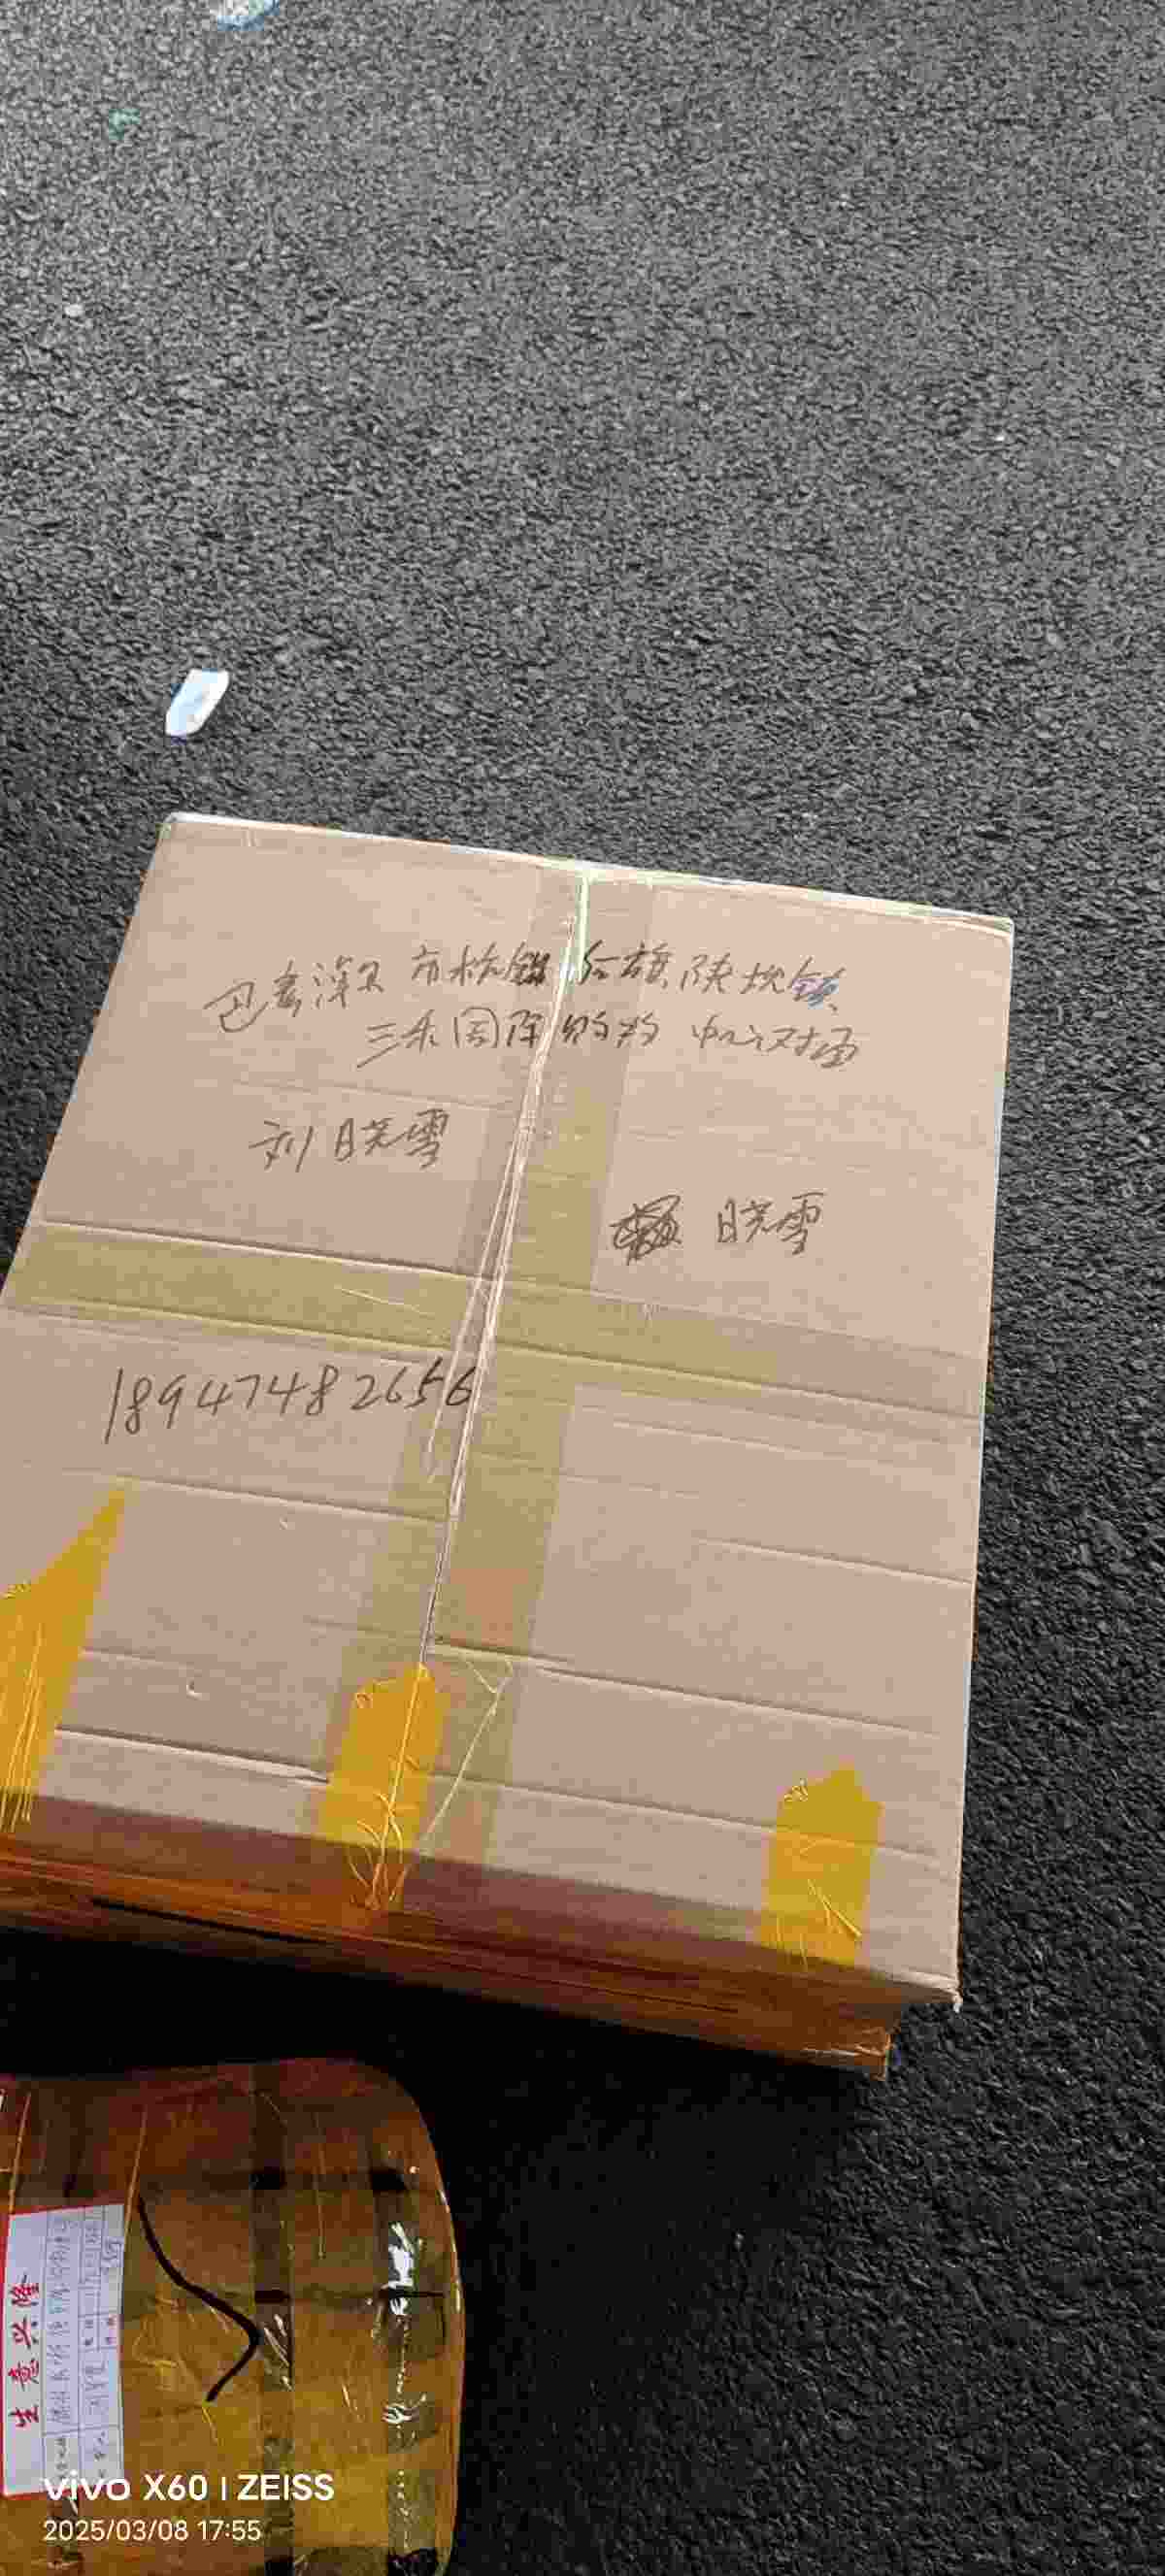 巴彦淖尔市杭锦后旗陕坝镇
三禾国际购物中心对面
刘晓雪
晓雪
18947482656
生意兴隆
vivo X60 | ZEISS
2025/03/08 17:55